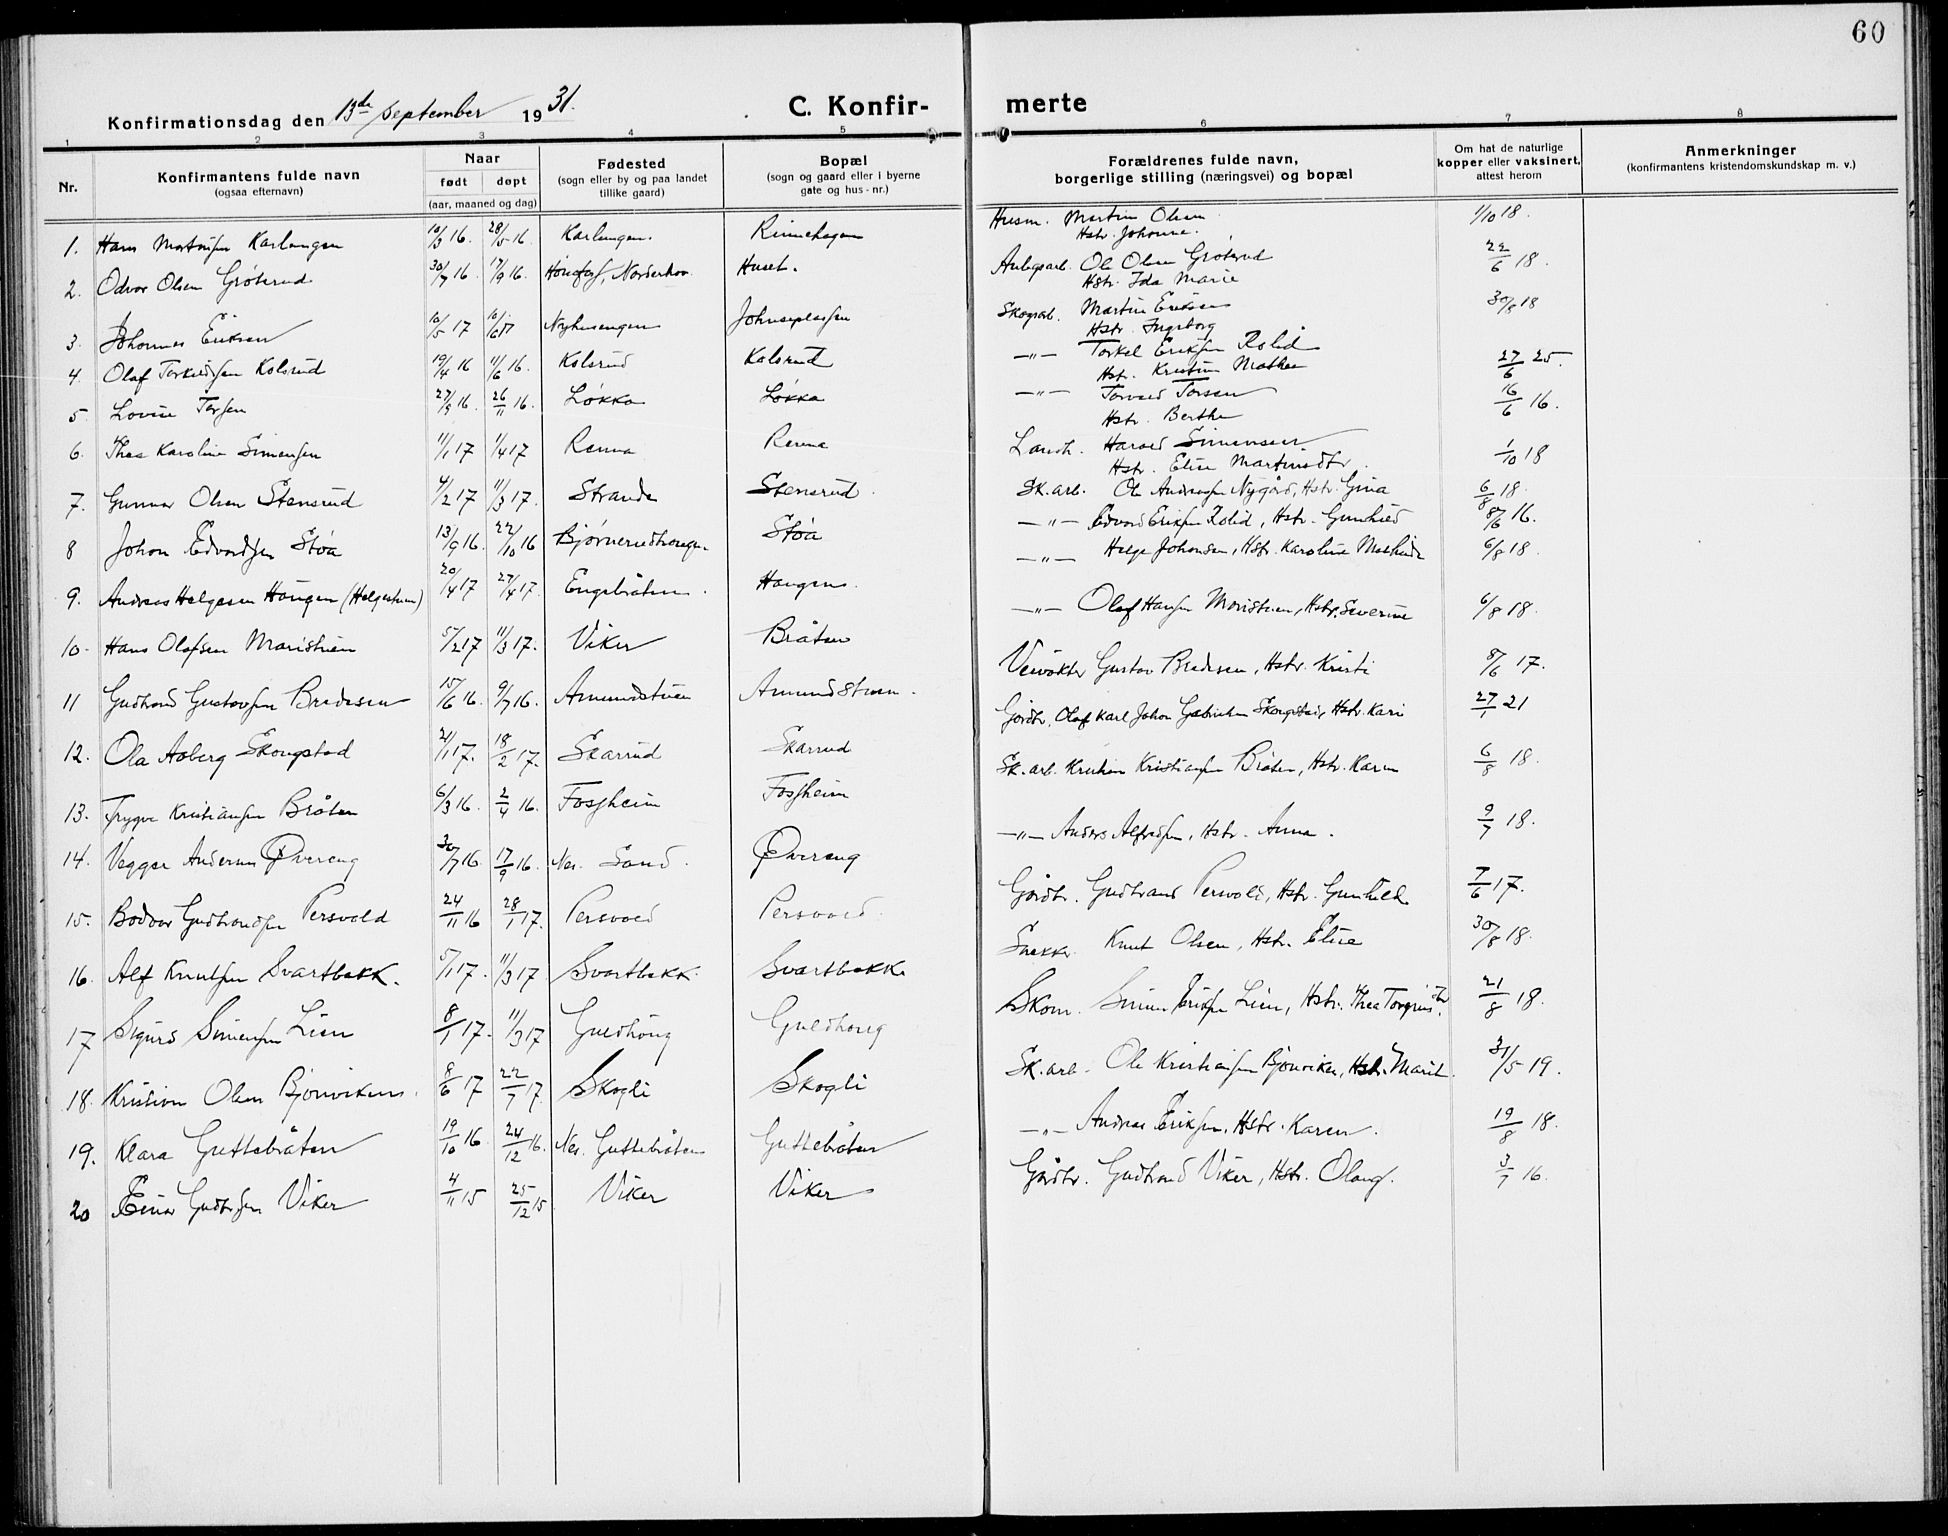 60
Konfirmationsdag den 13de september 1931.
C. Konfirmerte
1 2 3 4 5 6 7 8
Nr.
Konfirmantens fulde navn
(ogsaa efternavn)
Naar
født døpt
(aar, maaned og dag)
Fødested
(sogn eller by og paa landet
tillike gaard)
Bopæl
(sogn og gaard eller i byerne
gate og hus-nr.)
Forældrenes fulde navn,
borgerlige stilling (næringsvei) og bopæl
Om hat de naturlige
kopper eller vaksinert,
attest herom
Anmerkninger
(konfirmantens kristendomskundskap m. v.)
1. Hans Martinsen Karlengen 10/3 16. 28/5 16. Karlengen. Rinnehagen Husm. Martin Olsen Hstr. Johanne. 1/10 18.
2. Odvar Olsen Gröterud 30/7 16. 17/9 16. Hönefoss, Norderhov. Huset. Anlegsarb. Ole Olsen Gröterud Hstr. Ida Marie 22/6 18.
3. Johannes Eriksen 10/5 17 10/6 17 Nyhusengen Johnseplassen Skogsarb. Martin Eriksen Hstr. Ingeborg 30/8 18
4. Olaf Torkildsen Kolsrud 19/4 16 11/6 16. Kolsrud Kolsrud —"— Torkel Eriksen Rolid Hstr. Kristine Mathea 27/6 25.
5. Lovise Torsen 27/9 16. 26/11 16. Løkka Løkka —"— Torvald Torsen Hstr. Berthe 16/6 16.
6. Thea Karoline Simensen 11/1 17 1/4 17 Renna Renna Landh. Harald Simensen Hstr. Elise Martinsdtr. 1/10 18
7. Gunnar Olsen Stensrud 4/2 17 11/3 17. Stranda Stensrud. Sk.arb. Ole Andreassen Nygård, Hstr. Gina 6/8 18.
8 Johan Edvardsen Støa 13/9 16. 22/10 16 Bjørnerudhaugen Støa —"— Edvard Eriksen Rolid, Hstr. Gunhild 8/6 16.
9. Andreas Helgesen Haugen (Helgestuen) 20/4 17 27/4 17. Engebråten. Haugen. —"— Helge Johansen, Hstr. Karoline Mathilde 6/8 18.
10. Hans Olafsen Maristuen 5/2 17 11/3 17. Viker Bråten —"— Olaf Hansen Maristuen, Hstr. Severine 6/8 18.
11 Gudbrand Gustavsen Bredesen 15/6 16. 9/7 16. Amundstuen Amundstuen. Veivokter Gustav Bredesen, Hstr. Kristi 8/6 17.
12. Ola Aaberg Skougstad 21/1 17. 18/2 17. Skarrud Skarrud Gårdbr. Olaf Karl Johan Gabrielsen Skougstad, Hstr. Kari 27/1 21
13. Trygve Kristiansen Bråten 6/3 16. 2/4 16. Fossheim Fossheim Sk.arb. Kristian Kristiansen Bråten, Hstr. Karen 6/8 18.
14. Vegger Andersen Øvereng 30/7 16. 17/9 16. Nes. Sand. Øvereng —"— Anders Alfredsen, Hstr. Anna. 9/7 18.
15. Bodvar Gudbrandsen Persvold 24/11 16 28/1 17. Persvold Persvold. Gårdbr. Gudbrand Persvold, Hstr. Gunhild 7/6 17.
16. Alf Knutsen Svartbekk. 5/1 17. 11/3 17 Svartbekk. Svartbekk Snekker Knut Olsen, Hstr. Elise 30/8 18.
17 Sigurd Simensen Lien 8/1 17. 11/3 17 Guldhaug Guldhaug Skom. Simen Eriksen Lien, Hstr. Thea Torgrimsdtr. 21/8 18.
18. Kristian Olsen Bjönviken. 8/6 17 22/7 17. Skogli Skogli Sk.arb. Ole Kristiansen Bjönviken, Hstr. Marit. 31/5 19.
19. Klara Guttebråten 19/10 16 24/12 16. Nes. Guttebråten Guttebråten —"— Andreas Eriksen, Hstr. Karen. 19/8 18.
20 Einar Gudbr.sen Viker 4/11 15 25/12 15 Viker Viker Gårdbr. Gudbrand Viker, Hstr. Olaug. 3/7 16.